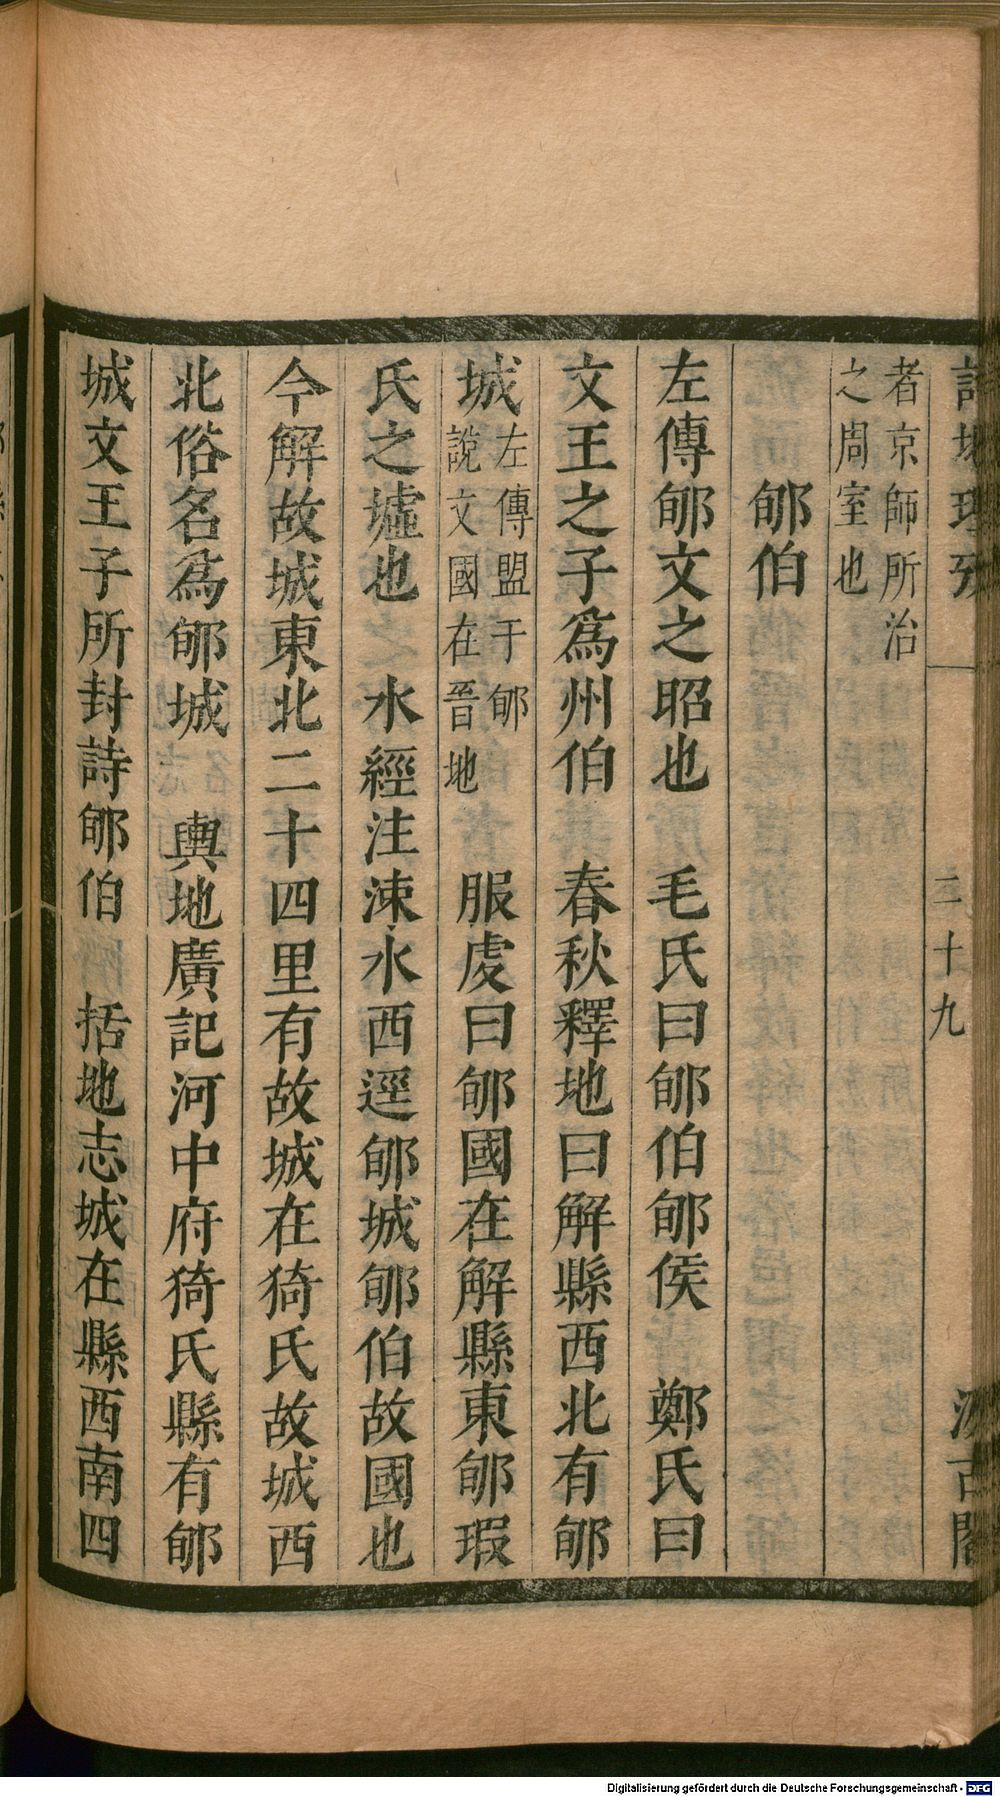 二十九
者京師所治
之周室也
郇伯
左傳郇文之昭也 毛氏曰郇伯郇侯 鄭氏曰
文王之子爲州伯 春秋釋地曰解縣西北有郇
城左傳盟于郇說文國在晉地 服虔曰郇國在解縣東郇瑕
氏之墟也 水經注涑水西逕郇城郇伯故國也
今解故城東北二十四里有故城在猗氏故城西
北俗名爲郇城 輿地廣記河中府猗氏縣有郇
城文王子所封詩郇伯 括地志城在縣西南四
Digitalisierung gefördert durch die Deutsche Forschungsgemeinschaft - DFG